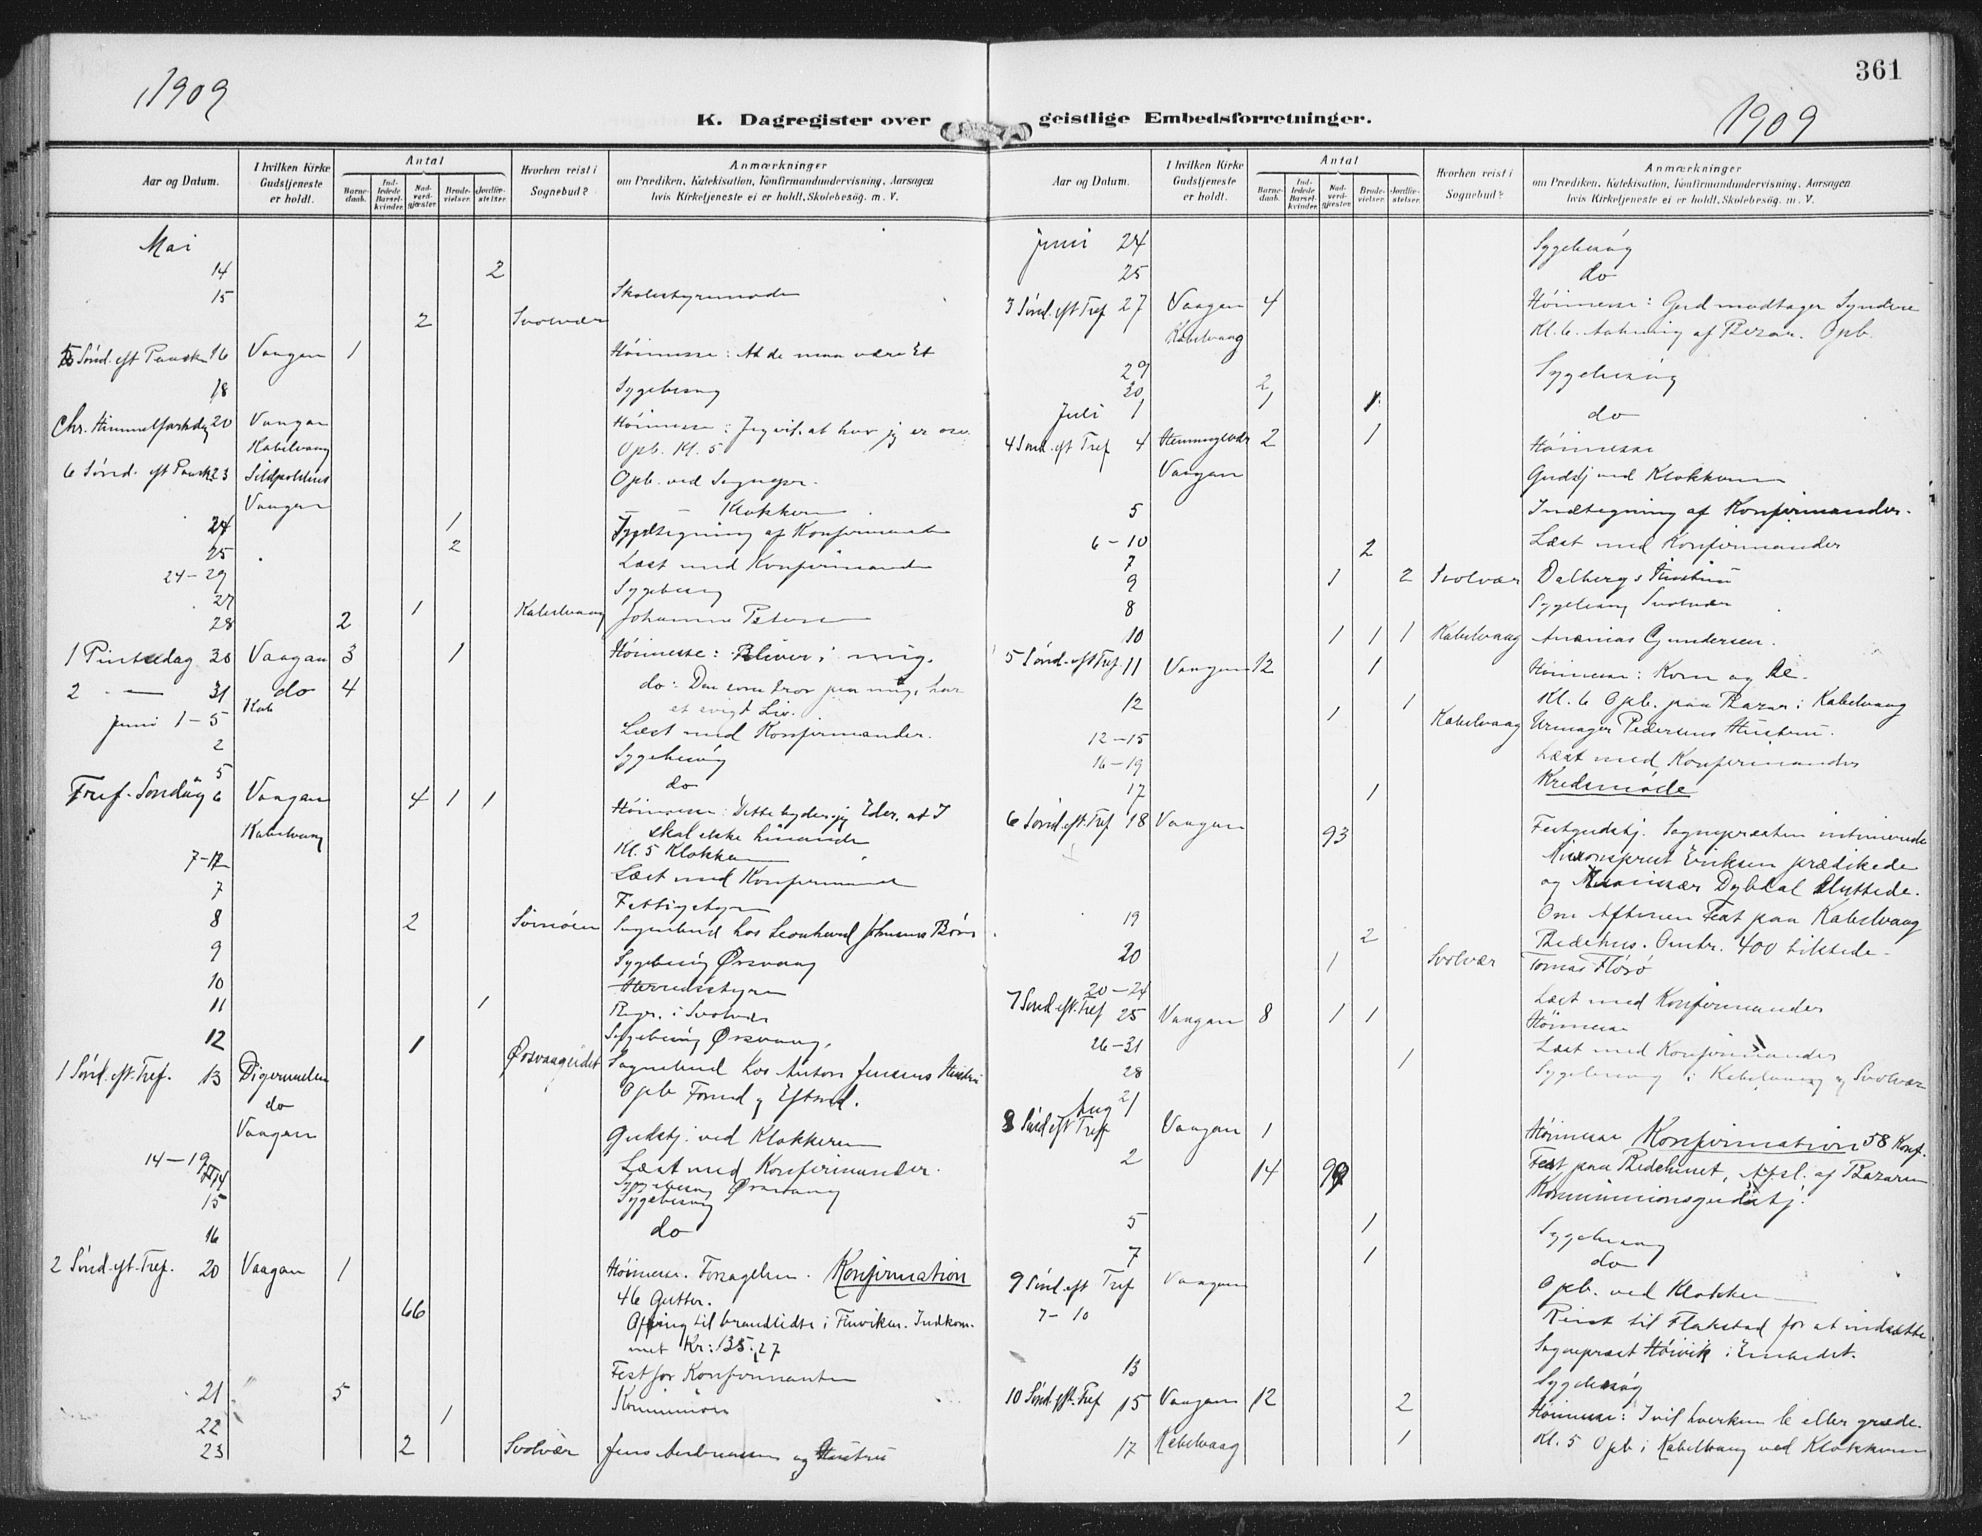 1909
K. Dagregister over
Aar og Datum.
I hvilken Kirke Gudstjeneste er holdt.
Antal
Barnedaab.
Indledede Barselkvinder.
Nadverdgjæster.
Brudevielser.
Jordfæstelser.
Hvorhen reist i Sognebud?
Anmærkninger
om Prædiken, Katekisation, Konfirmandundervisning, Aarsagen
hvis Kirketjeneste ei er holdt, Skolebesøg. m. V.
Mai
14 2
15 Skolestyremøde
2 Svolvær
5 Sønd. eft Paaske 16 Vaagan 1 Høimesse: At de maa være Et
18 Sygebesøg
Chr. Himmelfartsdag 20 Vaagan Høimesse: Jeg vil, at hvor jeg er osv
Kabelvaag Opb. Kl. 5
6 Sønd. eft Paaske 23 Opb. ved Sognepr.
Vaagan — Klokkeren
24 1 Indtegning af Konfirmanter
25 2
24-29 Læst med Konfirmander
27 Sygebesøg
28 2 1 Kabelvaag Johanna Petersen
1 Pintsedag 30 Vaagan 3 1 Høimesse: Bliver i mig.
2 — 31 do 4 do: Den som tror paa mig, har
Kab et evigt Liv.
Juni 1-5 Læst med Konfirmander.
2 Sygebesøg
5 do
Tref. Søndag 6 Vaagan 4 1 1 Høimesse: Dette byder jeg Eder, at I
Kabelvaag skal elske hinanden
Kl. 5 Klokkeren
7-12 Læst med Konfirmander
7 Fattigstyre
8 2 Sognebud hos Leonhard Johnsens Børn
9 Sygebesøg Ørsvaag
10 Herredsstyre
11 1 i Svolvær
12 1 Sygebesøg Ørsvaag.
Ørsvaageidet Sognebud hos Anton Jensens Hustru
1 Sønd. eft. Tref. 13 Digermulen Opb Formd og Eftmd.
do
Vaagan Gudstj. ved Klokkeren
14-19 Læst med Konfirmander.
14 Sygebesøg Ørsvaag
15 Sygebesøg
16 do
2 Sønd. eft. Tref. 20 Vaagan 1 Høimesse. Forsagelsen. Konfirmation
46 Gutter.
66 Ofring til brandlidte i Finviken. Indkom-
met Kr: 135.27
Fest for Konfirmanter
21 5 Kommunion
22 1
23 2 Svolvær Jens Andreassen og Hustru
361
1909
geistlige Embedsforretninger.
Aar og Datum.
I hvilken Kirke Gudstjeneste er holdt.
Antal
Barnedaab.
Indledede Barselkvinder.
Nadverdgjæster.
Brudevielser.
Jordfæstelser.
Hvorhen reist i Sognebud?
Anmærkninger
om Prædiken, Katekisation, Konfirmandundervisning, Aarsagen
hvis Kirketjeneste ei er holdt, Skolebesøg. m. V.
Juni 24 Sygebesøg
25 do
3 Sønd. eft Tref 27 Vaagan 4 Høimesse: Gud modtager Syndere
Kabelvaag Kl. 6. Aabning af Bazar. Opb.
29 Sygebesøg
30 2
Juli 1 1 1 do
4 Sønd. eft Tref 4 Henningsvær 2 1 Høimesse
Vaagan Gudstj ved Klokkeren
5 Indtegning af Konfirmander.
6-10 2 Læst med Konfirmander
7
9 1 2 Svolvær Dalbergs Hustru
8 Sygebesøg Svolvær
10 1 1 1 Kabelvaag Ananias Gundersen.
5 Sønd. eft Tref. 11 Vaagan 12 1 Høimesse: Korn og
12 1 Kl. 6 Opb. paa Bazar i Kabelvaag
1 Kabelvaag Urmager Pedersens Hustru.
12-15
16-19 Læst med Konfirmander
17 1 Kredsmøde
6 Sønd. eft. Tref 18 Vaagan 93 Festgudstj. Sognepræsten intimerede
Missionsprest Eriksen prædikede
og Dybdal sluttede.
19 Om Aftenen Fest paa Kabelvaag
2 Bedehus. Omtr. 400 tilstede.
20 1 Svolvær Tomas Florø
20-24 Læst med Konfirmander
7 Sønd. eft. Tref 25 Vaagan 8 1 1 Høimesse
26-31 Læst med Konfirmander
28 1 Sygebesøg i Kabelvaag og Svolvær
Aug 1
8 Sønd eft Tref Vaagan 1 Høimesse Konfirmation 58 Konf.
2 Fest paa Bedehuset, Afsl. af Bazaren
14 99 Kommunionsgudstj.
5 1 Sygebesøg
7 1 do
9 Sønd. eft Tref Vaagan Opb. ved Klokkeren
7-10 Reist til Flakstad for at indsætte
Sognepræst Høivik i Embedet.
13 Sygebesøg
10 Sønd. eft. Tref 15 Vaagan 12 2 Høimesse: I vil hverken le eller græde.
17 Kabelvaag 1 Kl. 5 Opb i Kabelvaag ved Klokkeren